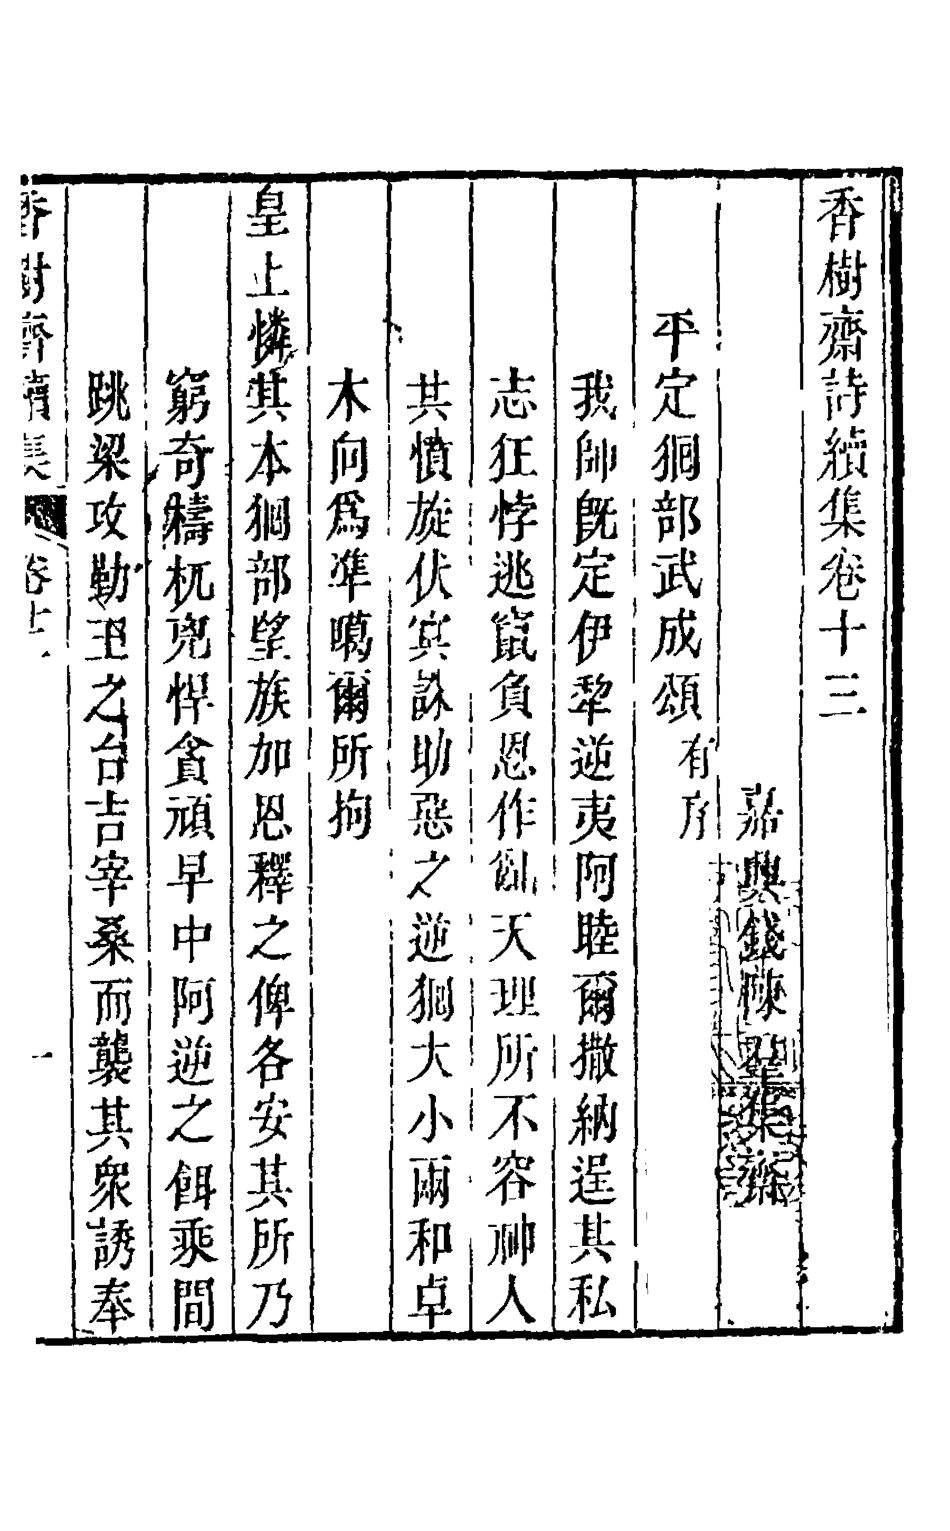 香樹齋詩續集卷十三
嘉興錢陳羣集齋
平定部武成頌有序
我師旣定伊犂逆夷阿睦爾撒納逞其私
志狂悖逃竄負恩作亂天理所不容神人
共憤旋伏冥誅助惡之逆大小兩和卓
木向爲準噶爾所拘
皇上憐其本部望族加恩釋之俾各安其所乃
窮奇檮杌兇悍貪頑早中阿逆之餌乘間
跳梁攻勒王之台吉宰桑而襲其衆誘奉
香樹齋續集 卷十 一